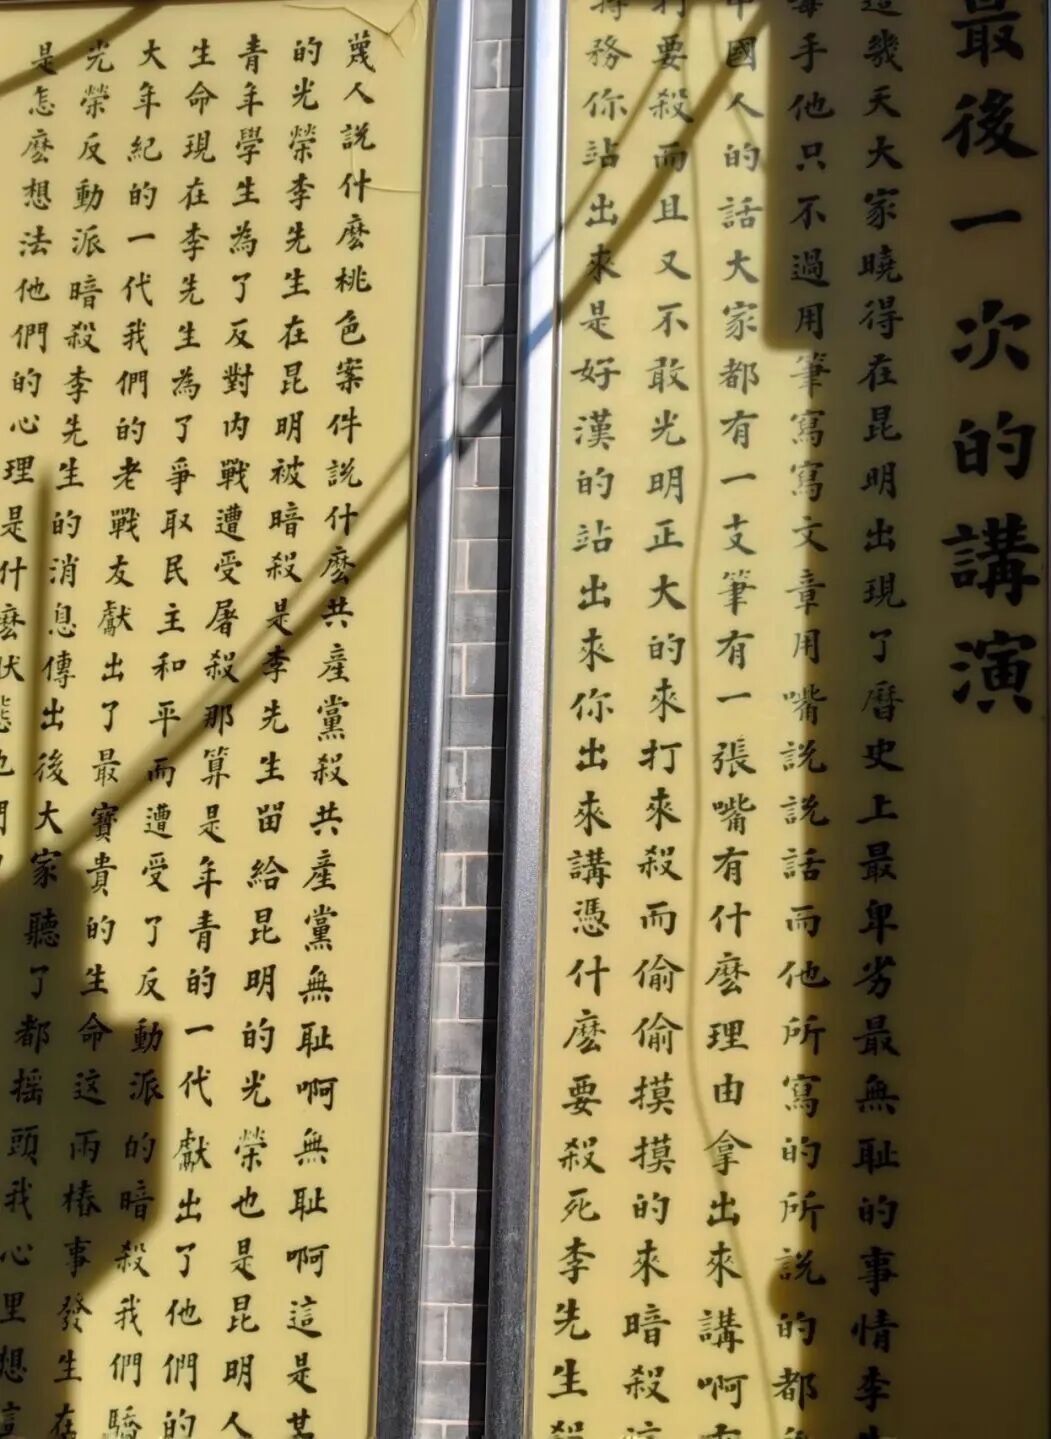 最後一次的講演
這幾天大家曉得在昆明出現了曆史上最卑劣最無耻的事情李
毒手他只不過用筆寫寫文章用嘴說說話而他所寫的所說的都
中國人的話大家都有一支筆有一張嘴有什麽理由拿出來講啊
打要殺而且又不敢光明正大的來打來殺而偷偷摸摸的來暗殺
特務你站出來是好漢的站出來你出來講憑什麽要殺死李先生
蔑人說什麽桃色案件說什麽共產黨殺共產黨無耻啊無耻啊這是某
的光榮李先生在昆明被暗殺是李先生留給昆明的光榮也是昆明人
青年學生為了反對内戰遭受屠殺那算是年青的一代獻出了他們的
生命現在李先生為了爭取民主和平而遭受了反動派的暗殺我們驕
大年紀的一代我們的老戰友獻出了最寶貴的生命这兩樁事發生在
光榮反動派暗殺李先生的消息傳出後大家聽了都摇頭我心里想這
是怎麽想法他們的心理是什麽狀態他們